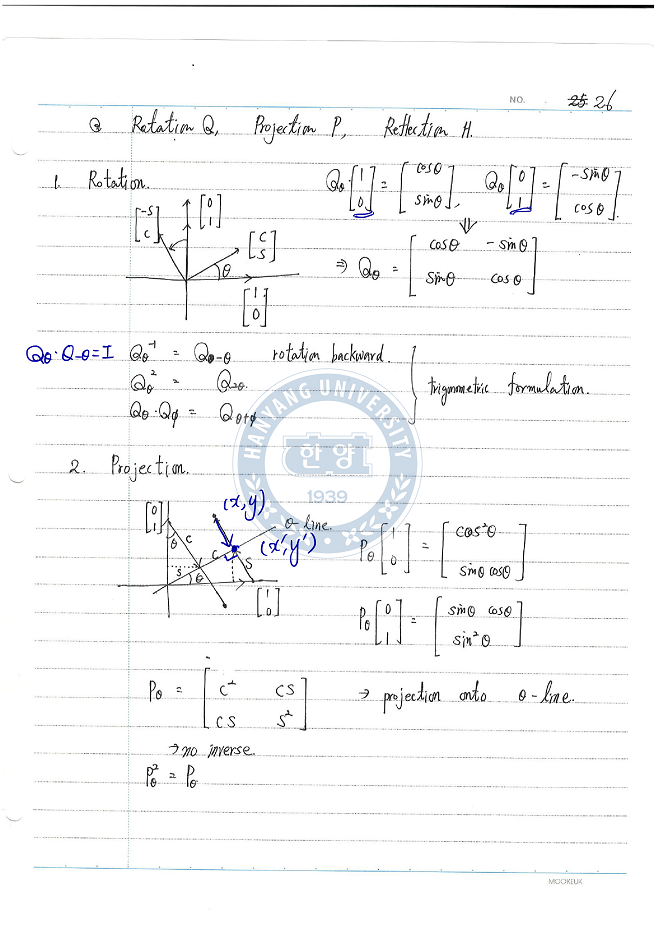 NO. 25 26
Rotation Q, Projection P, Reflection H.
1. Rotation.
Qθ·[1 0] = [cosθ sinθ], Qθ[0 1] = [-sinθ cosθ].
[-s c] [0 1] [c s] θ [1 0]
⇓
⇒ Qθ = [cosθ -sinθ
sinθ cosθ]
Qθ·Q-θ=I Qθ⁻¹ = Q-θ rotation backward.
Qθ² = Q2θ.
Qθ·Qϕ = Qθ+ϕ
trigmometric formulation.
HANYANG UNIVERSITY
한양
1939
2. Projection.
[0 1] θ c (x,y) θ-line.
s θ c (x',y') s [1 0]
Pθ[1 0] = [cos²θ sinθ cosθ]
Pθ[0 1] = [sinθ cosθ sin²θ]
Pθ = [c² cs
cs s²] → projection onto θ-line.
→ no inverse.
Pθ² = Pθ
MOOKEUK